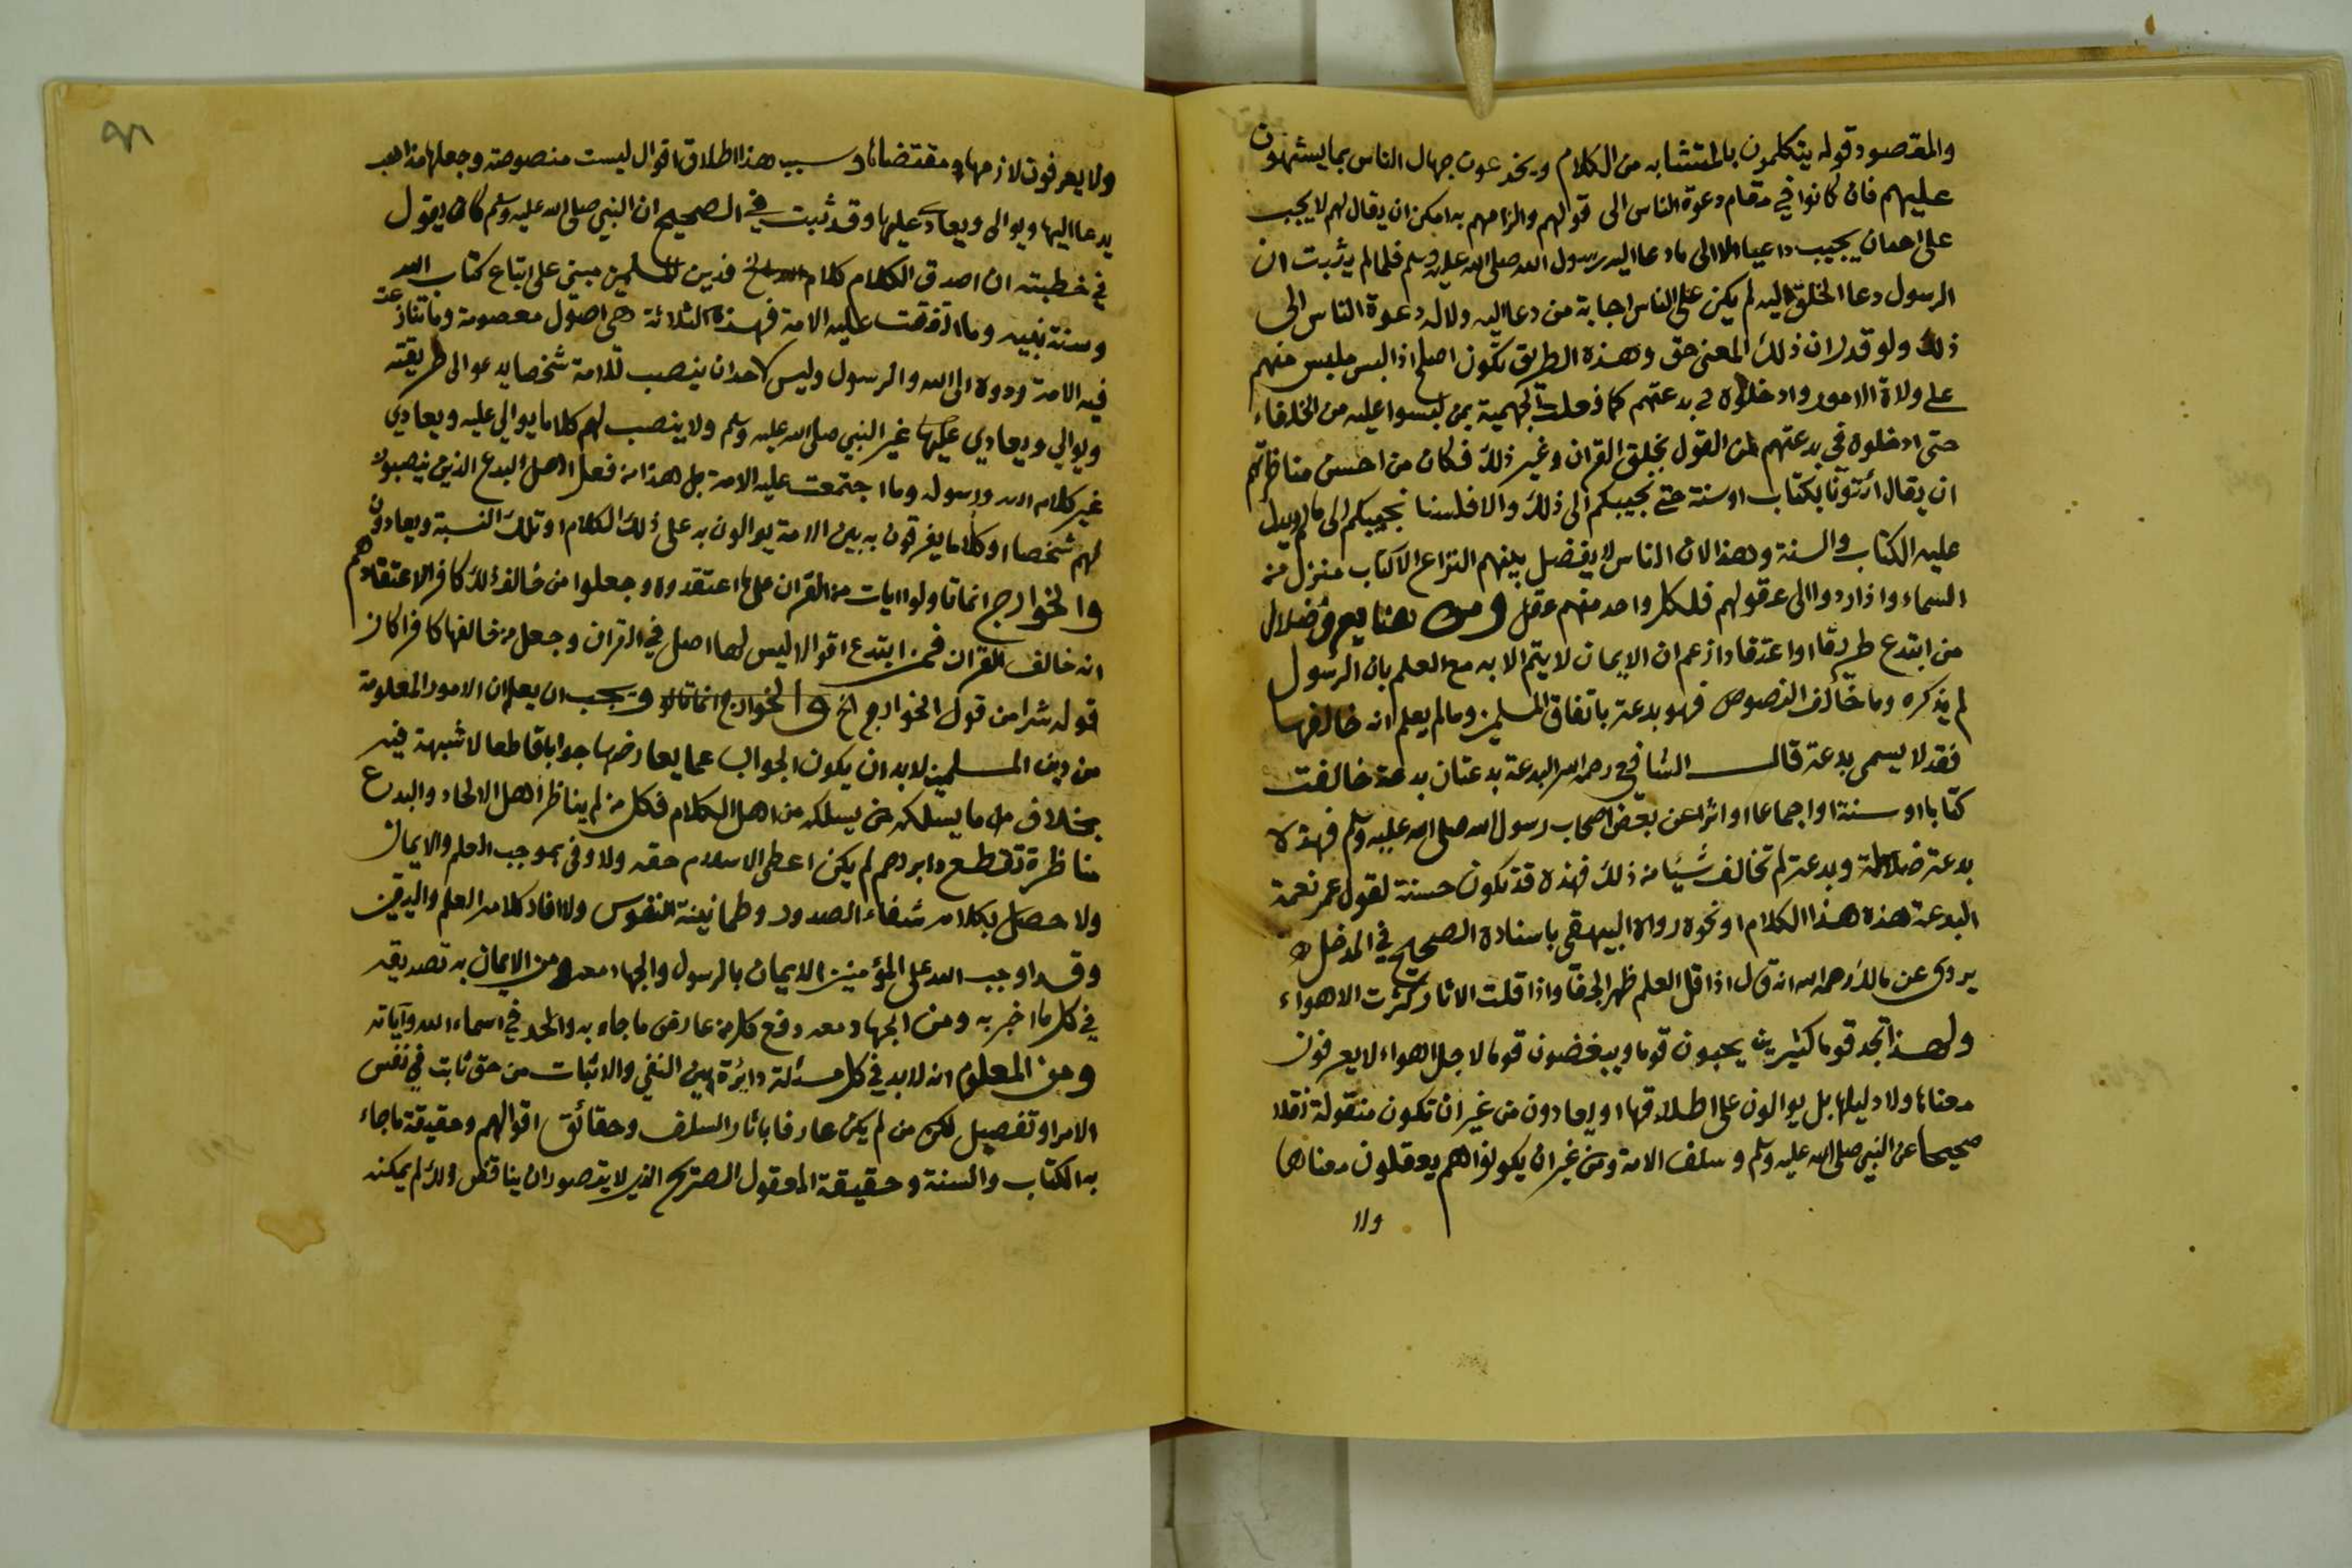 والمقصود قوله يتكلمون بالمتشابه من الكلام ويخدعون جهال الناس بما يشبهون
عليهم فان كانوا في مقام دعوة الناس الى قولهم والزامهم به امكن ان يقال لهم لا يجب
على احد ان يجيب داعيا الا الى ما دعا اليه رسول الله صلى الله عليه وسلم فلما لم يثبت ان
الرسول دعا الخلق اليه لم يكن على الناس اجابة من دعا اليه ولا له دعوة الناس الى
ذلك ولو قدر ان ذلك المعنى حق وهذه الطريق تكون اصلح اذا لبس ملبس منهم
على ولاة الامور وادخلوه في بدعتهم كما فعلت الجهمية بمن لبسوا عليه من الخلفاء
حتى ادخلوه في بدعتهم من القول بخلق القران وغير ذلك فكان من احسن مناظرتهم
ان يقال ائتونا بكتاب او سنة حتى نجيبكم الى ذلك والا فلسنا نجيبكم الى ما لم يدل
عليه الكتاب والسنة وهذا لان الناس لا يفصل بينهم النزاع الا كتاب منزل من
السماء واذا ردوا الى عقولهم فلكل واحد منهم عقل ومن هنا يعرف ضلال
من ابتدع طريقا او اعتقادا زعم ان الايمان لا يتم الا به مع العلم بان الرسول
لم يذكره وما خالف النصوص فهو بدعة باتفاق المسلمين وما لم يعلم انه خالفها
فقد لا يسمى بدعة قال الشافعي رحمه الله البدعة بدعتان بدعة خالفت
كتابا او سنة او اجماعا او اثرا عن بعض اصحاب رسول الله صلى الله عليه وسلم فهذه
بدعة ضلالة وبدعة لم تخالف شيئا من ذلك فهذه قد تكون حسنة لقول عمر نعمة
البدعة هذه هذا الكلام او نحوه رواه البيهقي باسناده الصحيح في المدخل
يروى عن مالك رحمه الله انه قال اذا قل العلم ظهر الجفا واذا قلت الاثار كثرت الاهواء
ولهذا تجد قوما كثيرين يحبون قوما ويبغضون قوما لاجل اهواء لا يعرفون
معناها ولا دليلها بل يوالون على اطلاقها او يعادون من غير ان تكون منقولة نقلا
صحيحا عن النبي صلى الله عليه وسلم وسلف الامة ومن غير ان يكونوا هم يعقلون معناها
ولا
ولا يعرفون لازمها ومقتضاها وسبب هذا اطلاق اقوال ليست منصوصة وجعلها مذاهب
يدعا اليها ويوالى ويعادى عليها وقد ثبت في الصحيح ان النبي صلى الله عليه وسلم كان يقول
في خطبته ان اصدق الكلام كلام الله الخ فدين المسلمين مبني على اتباع كتاب الله
وسنة نبيه وما اتفقت عليه الامة فهذه الثلاثة هي اصول معصومة وما تنازعت
فيه الامة ردوه الى الله والرسول وليس لاحد ان ينصب للامة شخصا يدعو الى طريقته
ويوالي ويعادي عليها غير النبي صلى الله عليه وسلم ولا ينصب لهم كلاما يوالي عليه ويعادي
غير كلام الله ورسوله وما اجتمعت عليه الامة بل هذا من فعل اهل البدع الذين ينصبون
لهم شخصا او كلاما يفرقون به بين الامة يوالون به على ذلك الكلام او تلك النسبة ويعادون
والخوارج انما تاولوا ايات من القران على ما اعتقدوه وجعلوا من خالف ذلك كافرا لاعتقادهم
انه خالف القران فمن ابتدع اقوالا ليس لها اصل في القران وجعل من خالفها كافرا كان
قوله شرا من قول الخوارج الخ والخوارج انما تاولوا ويجب ان يعلم ان الامور المعلومة
من دين المسلمين لابد ان يكون الجواب عما يعارضها جوابا قاطعا لا شبهة فيه
بخلاف ما يسلكه من يسلكه من اهل الكلام فكل من لم يناظر اهل الالحاد والبدع
مناظرة تقطع دابرهم لم يكن اعطى الاسلام حقه ولا وفى بموجب العلم والايمان
ولا حصل بكلامه شفاء الصدور وطمانينة النفوس ولا افاد كلامه العلم واليقين
وقد اوجب الله على المؤمنين الايمان بالرسول والجهاد معه ومن الايمان به تصديقه
في كل ما اخبر به ومن الجهاد معه دفع كل من عارض ما جاء به والحد في اسماء الله وآياته
ومن المعلوم انه لابد في كل مسئلة دائرة بين النفي والاثبات من حق ثابت في نفس
الامر او تفصيل لكن من لم يكن عارفا باثار السلف وحقائق اقوالهم وحقيقة ما جاء
به الكتاب والسنة وحقيقة المعقول الصريح الذي لا يتصور ان يناقض ذلك لم يمكنه